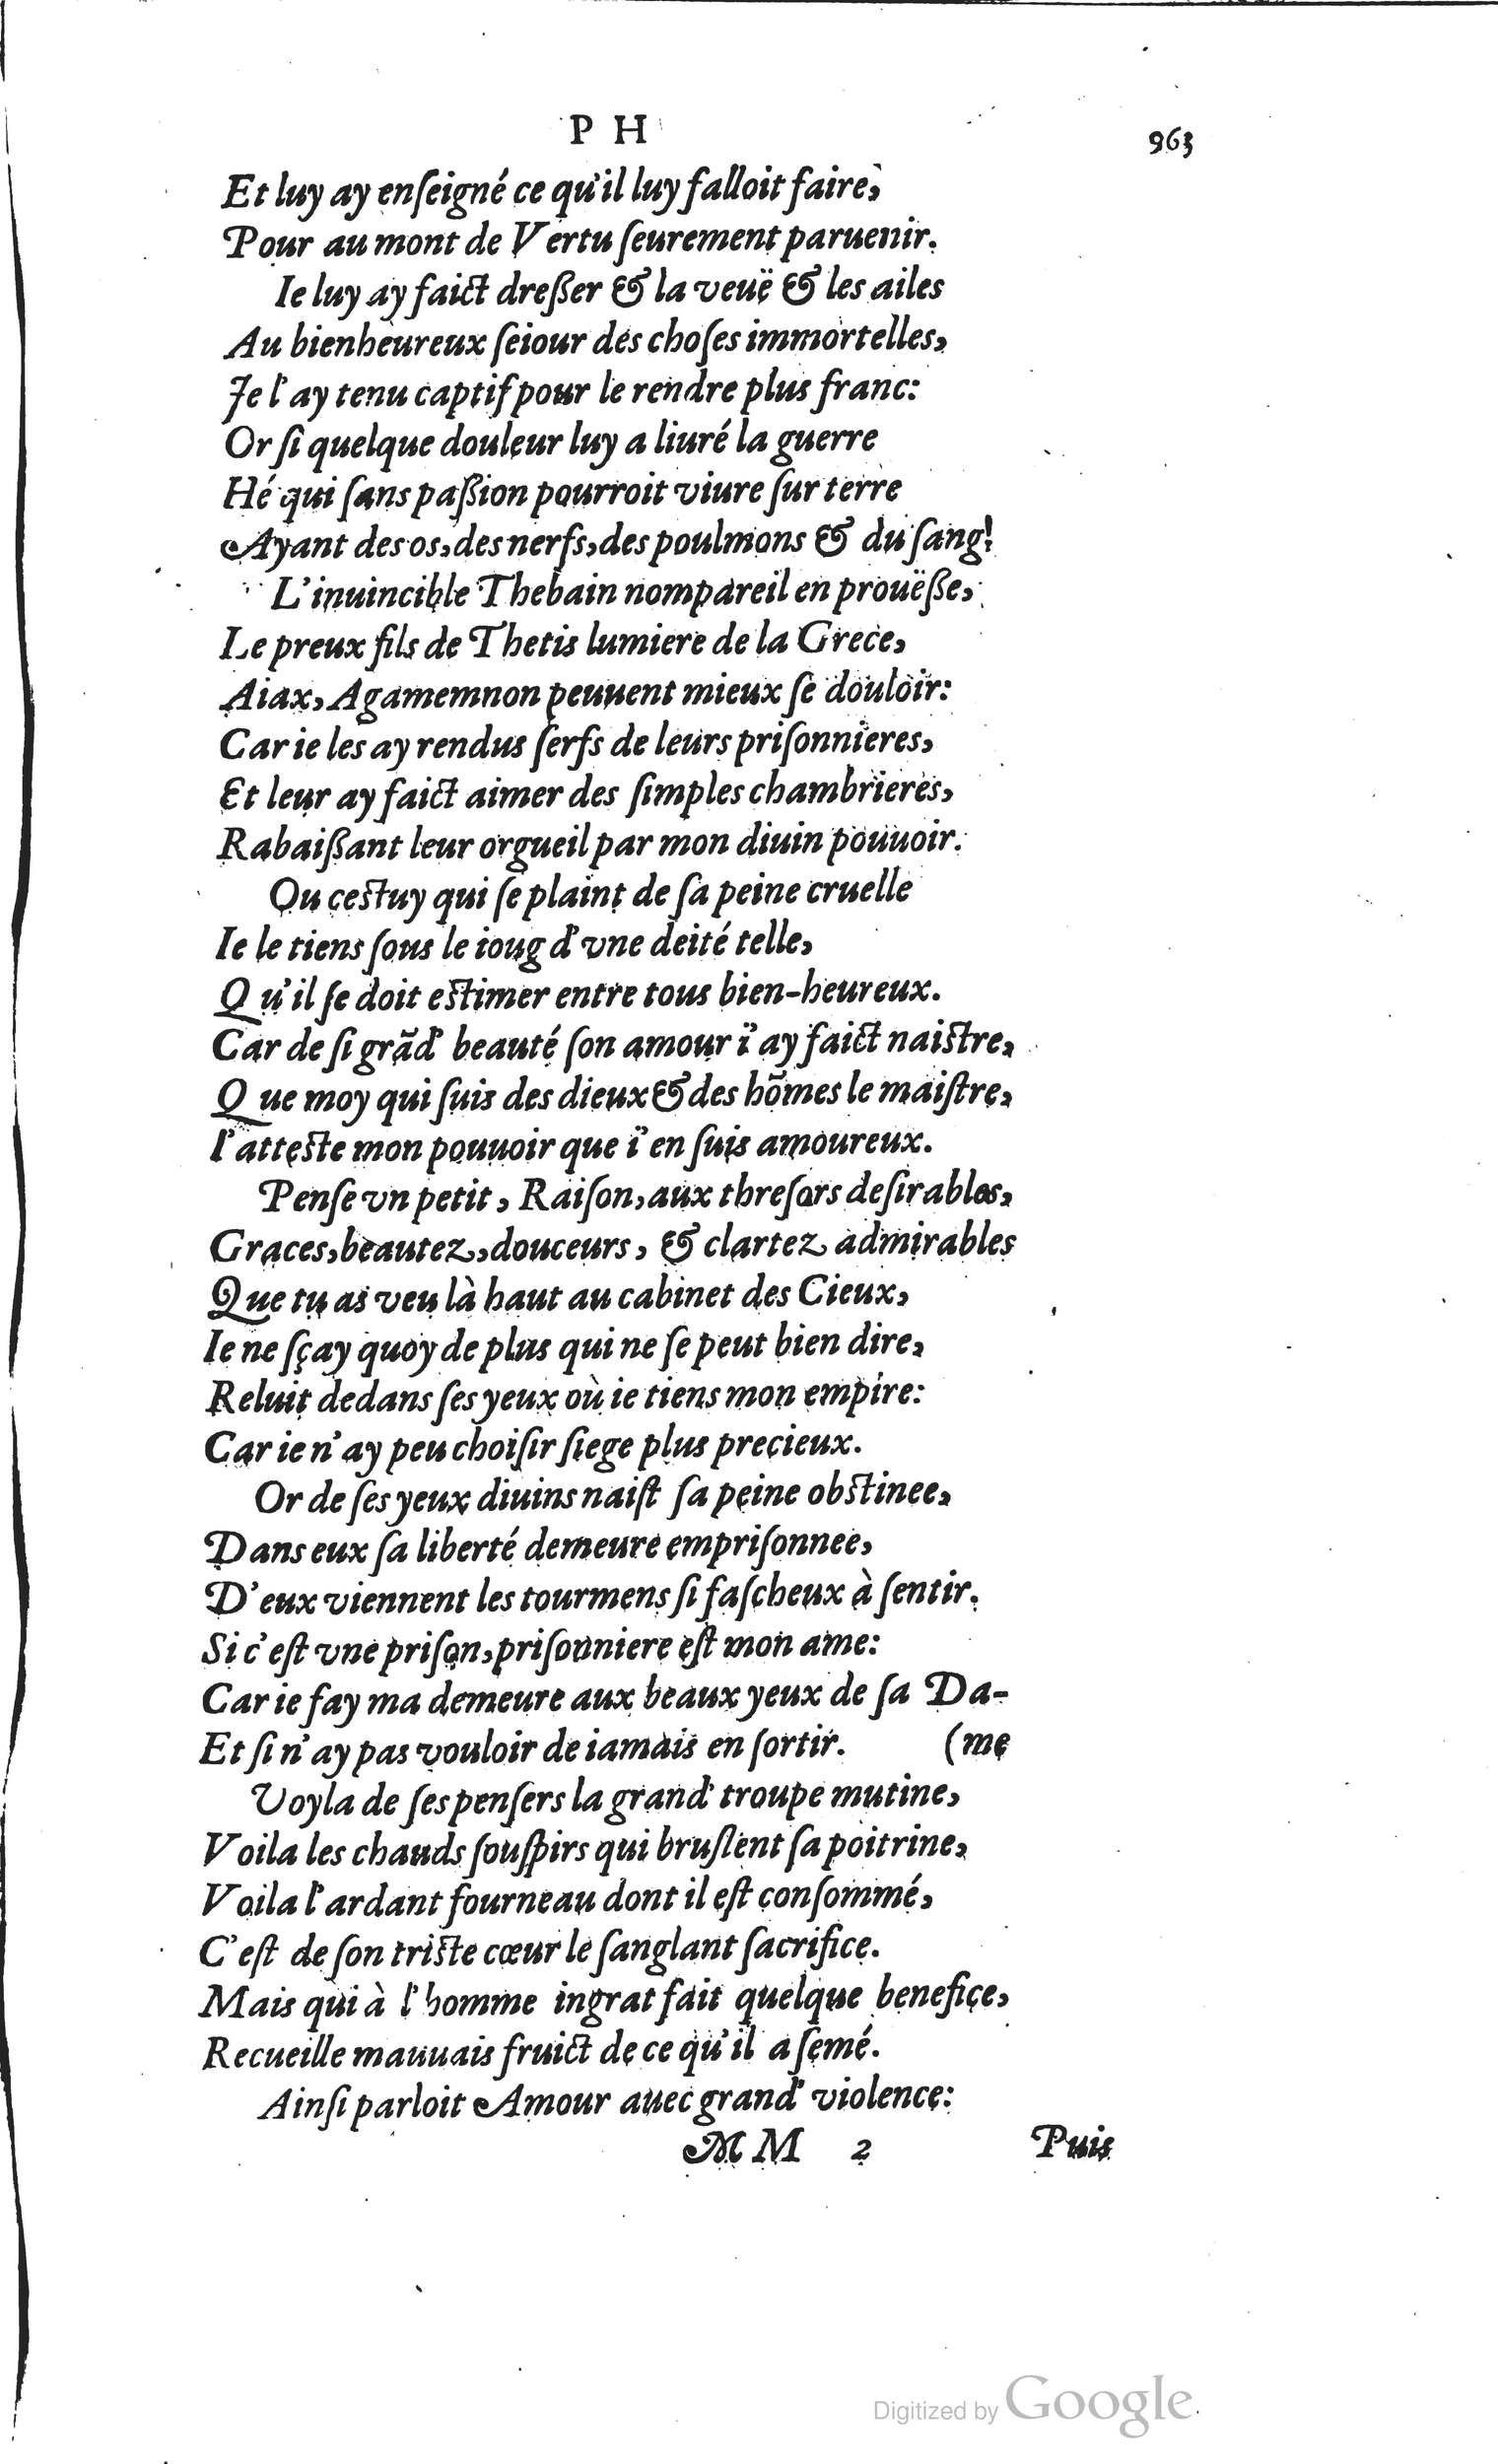 P H 963
Et luy ay enſeigné ce qu'il luy falloit faire,
Pour au mont de Vertu ſeurement paruenir.
Ie luy ay faict dreßer & la veuë & les ailes
Au bienheureux ſeiour des choſes immortelles,
Je l'ay tenu captif pour le rendre plus franc:
Or ſi quelque douleur luy a liuré la guerre
Hé qui ſans paßion pourroit viure ſur terre
Ayant des os, des nerfs, des poulmons & du ſang!
L'inuincible Thebain nompareil en prouëße,
Le preux fils de Thetis lumiere de la Grece,
Aiax, Agamemnon peuuent mieux ſe douloir:
Car ie les ay rendus ſerfs de leurs priſonnieres,
Et leur ay faict aimer des ſimples chambrieres,
Rabaißant leur orgueil par mon diuin pouuoir.
Ou ceſtuy qui ſe plaint de ſa peine cruelle
Ie le tiens ſous le ioug d'vne deité telle,
Qu'il ſe doit eſtimer entre tous bien-heureux.
Car de ſi grãd' beauté ſon amour i'ay faict naiſtre,
Que moy qui ſuis des dieux & des hõmes le maiſtre,
I'atteſte mon pouuoir que i'en ſuis amoureux.
Penſe vn petit, Raiſon, aux threſors deſirables,
Graces, beautez, douceurs, & clartez admirables
Que tu as veu là haut au cabinet des Cieux,
Ie ne ſçay quoy de plus qui ne ſe peut bien dire,
Reluit dedans ſes yeux où ie tiens mon empire:
Car ie n'ay peu choiſir ſiege plus precieux.
Or de ſes yeux diuins naiſt ſa peine obſtinee,
Dans eux ſa liberté demeure empriſonnee,
D'eux viennent les tourmens ſi faſcheux à ſentir.
Si c'eſt vne priſon, priſonniere eſt mon ame:
Car ie fay ma demeure aux beaux yeux de ſa Da-
Et ſi n'ay pas vouloir de iamais en ſortir. (me
Voyla de ſes penſers la grand' troupe mutine,
Voila les chauds ſouſpirs qui bruſlent ſa poitrine,
Voila l'ardant fourneau dont il eſt conſommé,
C'eſt de ſon triſte cœur le ſanglant ſacrifice.
Mais qui à l'homme ingrat fait quelque benefice,
Recueille mauuais fruict de ce qu'il a ſemé.
Ainſi parloit Amour auec grand' violence:
MM 2 Puis
Digitized by Google